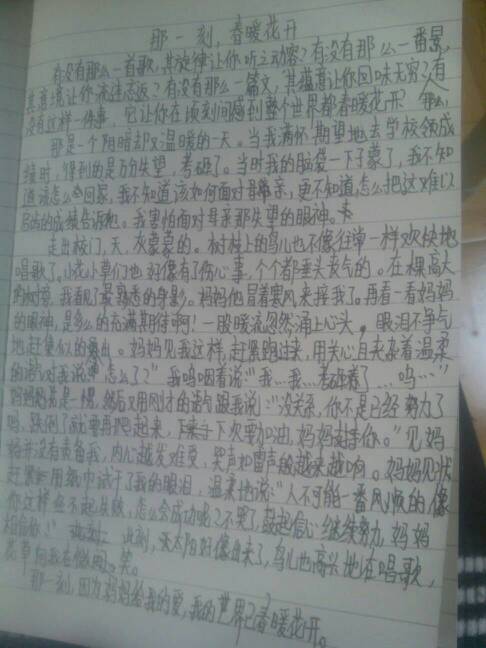 那一刻,春暖花开
有没有那么一首歌,其旋律让你听之动容?有没有那么一番景,
其意境让你流连忘返?有没有那么一篇文,其蕴意让你回味无穷?有
没有这样一件事,它让你在顷刻间感到整个世界都春暖花开?那么,
那是一个阴暗却又温暖的一天。当我满怀期望地去学校领成
绩时,得到的是万分失望,考砸了。当时我的脑袋一下子蒙了,我不知
道该怎么回家,我不知道该如何面对母亲,更不知道怎么把这难以
的成绩告诉她。我害怕面对母亲那失望的眼神。
走出校门,天,灰蒙蒙的。树上的鸟儿也不像往常一样欢快地
唱歌了。小花小草们也好像有了伤心事,个个都垂头丧气的。在一棵高大
的树旁,我看见了最熟悉的身影。妈妈她冒着寒风来接我了。再看一看妈妈
的眼神,是多么的充满期待啊!一股暖流忽然涌上心头,眼泪不争气
地赶集似的涌出。妈妈见我这样,赶紧跑过来,用关心且夹杂着温柔
的语气对我说:"怎么了?"我呜咽着说:"我…我…考砸了…呜…"
妈妈先是一愣,然后又用刚才的语气跟我说:"没关系,你不是已经努力了
吗,跌倒了就要再爬起来,下次要加油,妈妈支持你。"见妈
妈并没有责备我,内心越发难受,哭声和雷声般越来越响。妈妈见状
赶紧用纸巾试干了我的眼泪,温柔地说:"人不可能一番风顺的,像
你这样经不起失败,怎么会成功呢?不哭了,鼓起信心继续努力,妈妈
相信你!"此刻,天太阳好像出来了,鸟儿也高兴地在唱歌,
花草向我在微笑。
那一刻,因为妈妈给我的爱,我的世界已春暖花开。